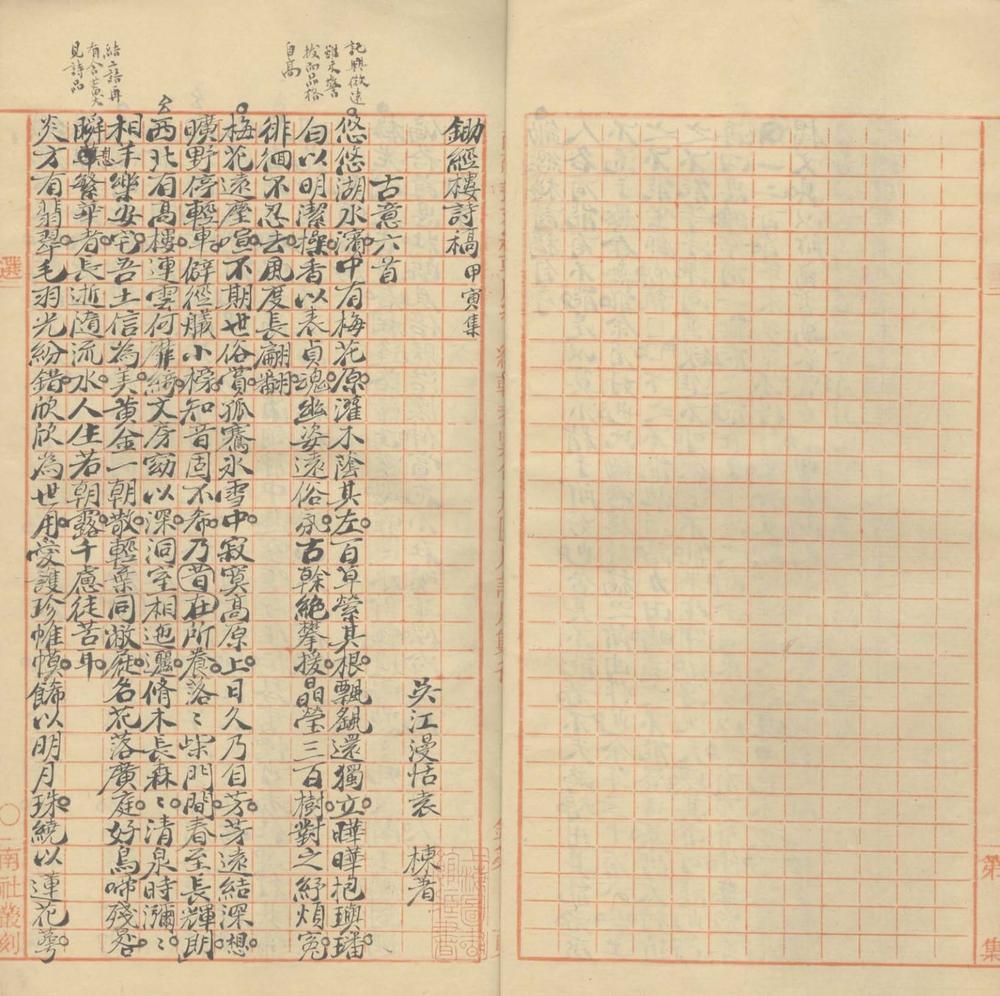 鋤經樓詩稿 甲寅集
吳江漫恬袁 棟著
古意六首
悠悠湖水濱中有梅花原灌木陰其左百草縈其根飄飖還獨立曄曄抱璵璠
白以明潔操香以表貞魂幽姿遠俗家古幹絕攀援晶瑩三百樹對之紓煩冤
徘徊不忍去風度長翩翻
梅花遠塵喧不期世俗賞孤騫冰雪中寂寞高原上日久乃自芳芳遠結深想
曠野停輕車僻徑艤小榜知音固不希乃昔在所養落々柴門間春至長輝朗
西北有高樓連雲何靡綺文房窈以深洞室相迤邐脩木長森々清泉時瀰々
相手樂安宅吾土信為美黃金一朝散輕葉同敝屣名花落廣庭好鳥啼殘晷
瞬息繁華者長逝隨流水人生若朝露千慮徒苦耳
炎方有翡翠毛羽光紛錯欣欣為世用愛護珍帷幙飾以明月珠繞以蓮花萼
託興微遠
雖未警
拔而品格
自高
結二語再
有含蓄尤
見詩品
選
南社叢刻
第
集